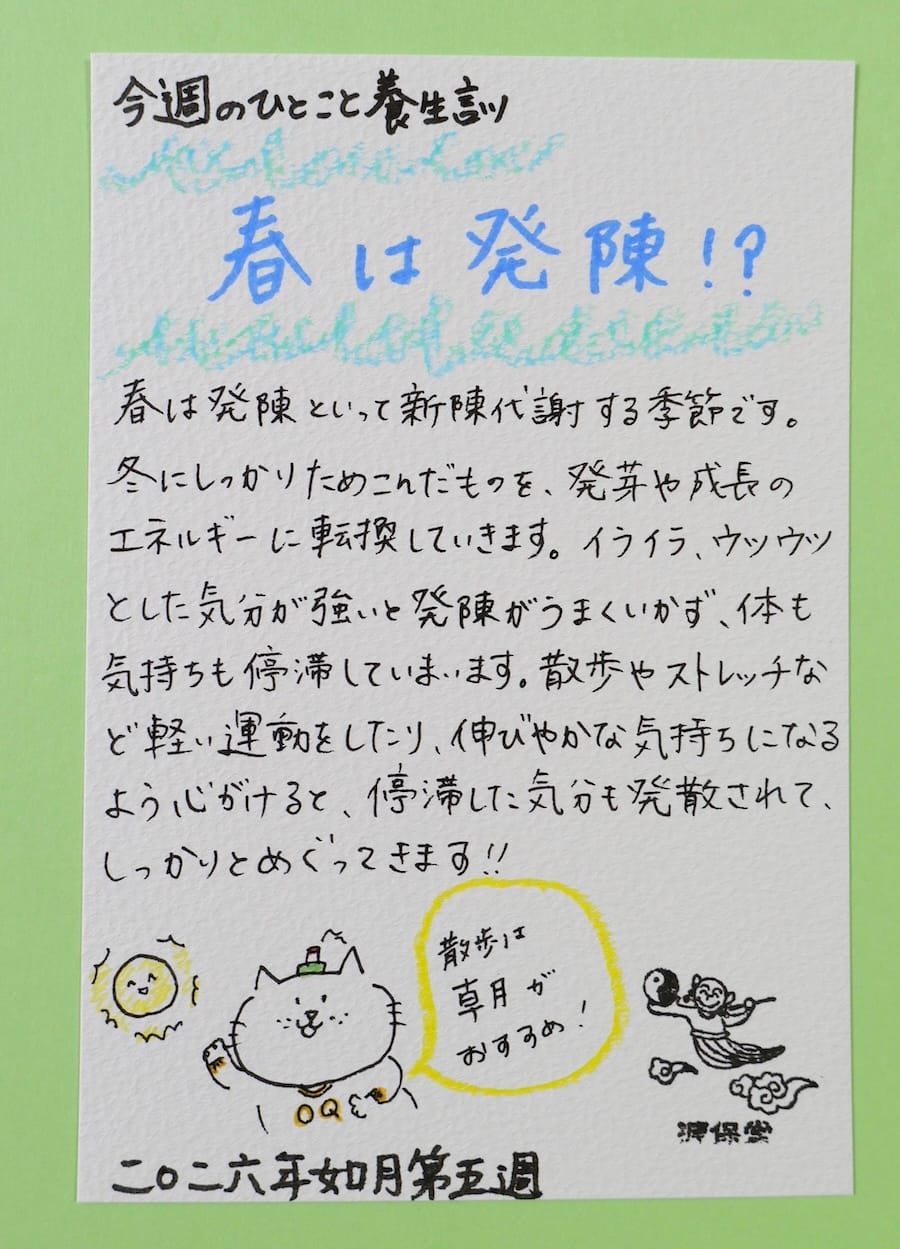 今週のひとこと養生訓
春は発陳!?
春は発陳といって新陳代謝する季節です。
冬にしっかりためこんだものを、発芽や成長の
エネルギーに転換していきます。イライラ、ウツウツ
とした気分が強いと発陳がうまくいかず、体も
気持ちも停滞していまいます。散歩やストレッチな
ど軽い運動をしたり、伸びやかな気持ちになる
よう心がけると、停滞した気分も発散されて、
しっかりとめぐってきます!!
散歩は
草月が
おすすめ!
二〇二六年如月第五週